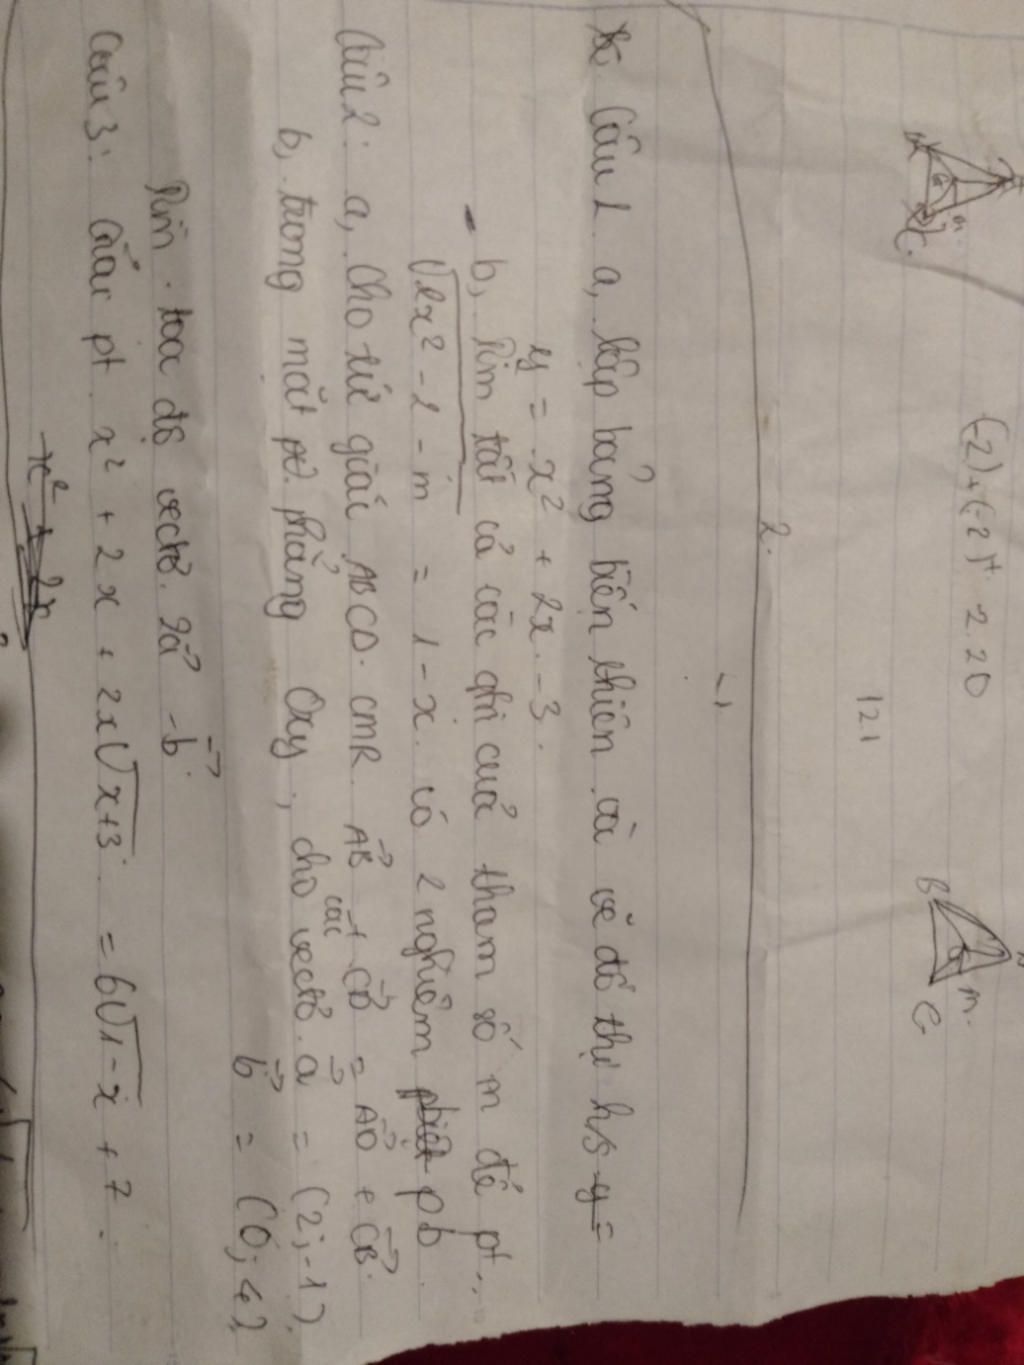 (-2)+(-2)+ 2.20
121
B C m G
B C m
2.
Câu 1 a, lập bảng biến thiên và vẽ đồ thị hs y=
y = x² + 2x - 3.
b, Tìm tất cả các gtri của tham số m để pt
√2x² - 2 - m = 1 - x. có 2 nghiệm pb.
Câu 2: a, Cho tứ giác ABCD. CMR. AB + CD = AD + CB.
b, trong mặt phẳng Oxy, cho các vectơ. a = (2; -1).
b = (0; 4)
Tìm toạ độ vectơ. 2a - b.
Câu 3: Giải pt. x² + 2x + 2x√x+3 = 6√1-x + 7.
x² + 2x